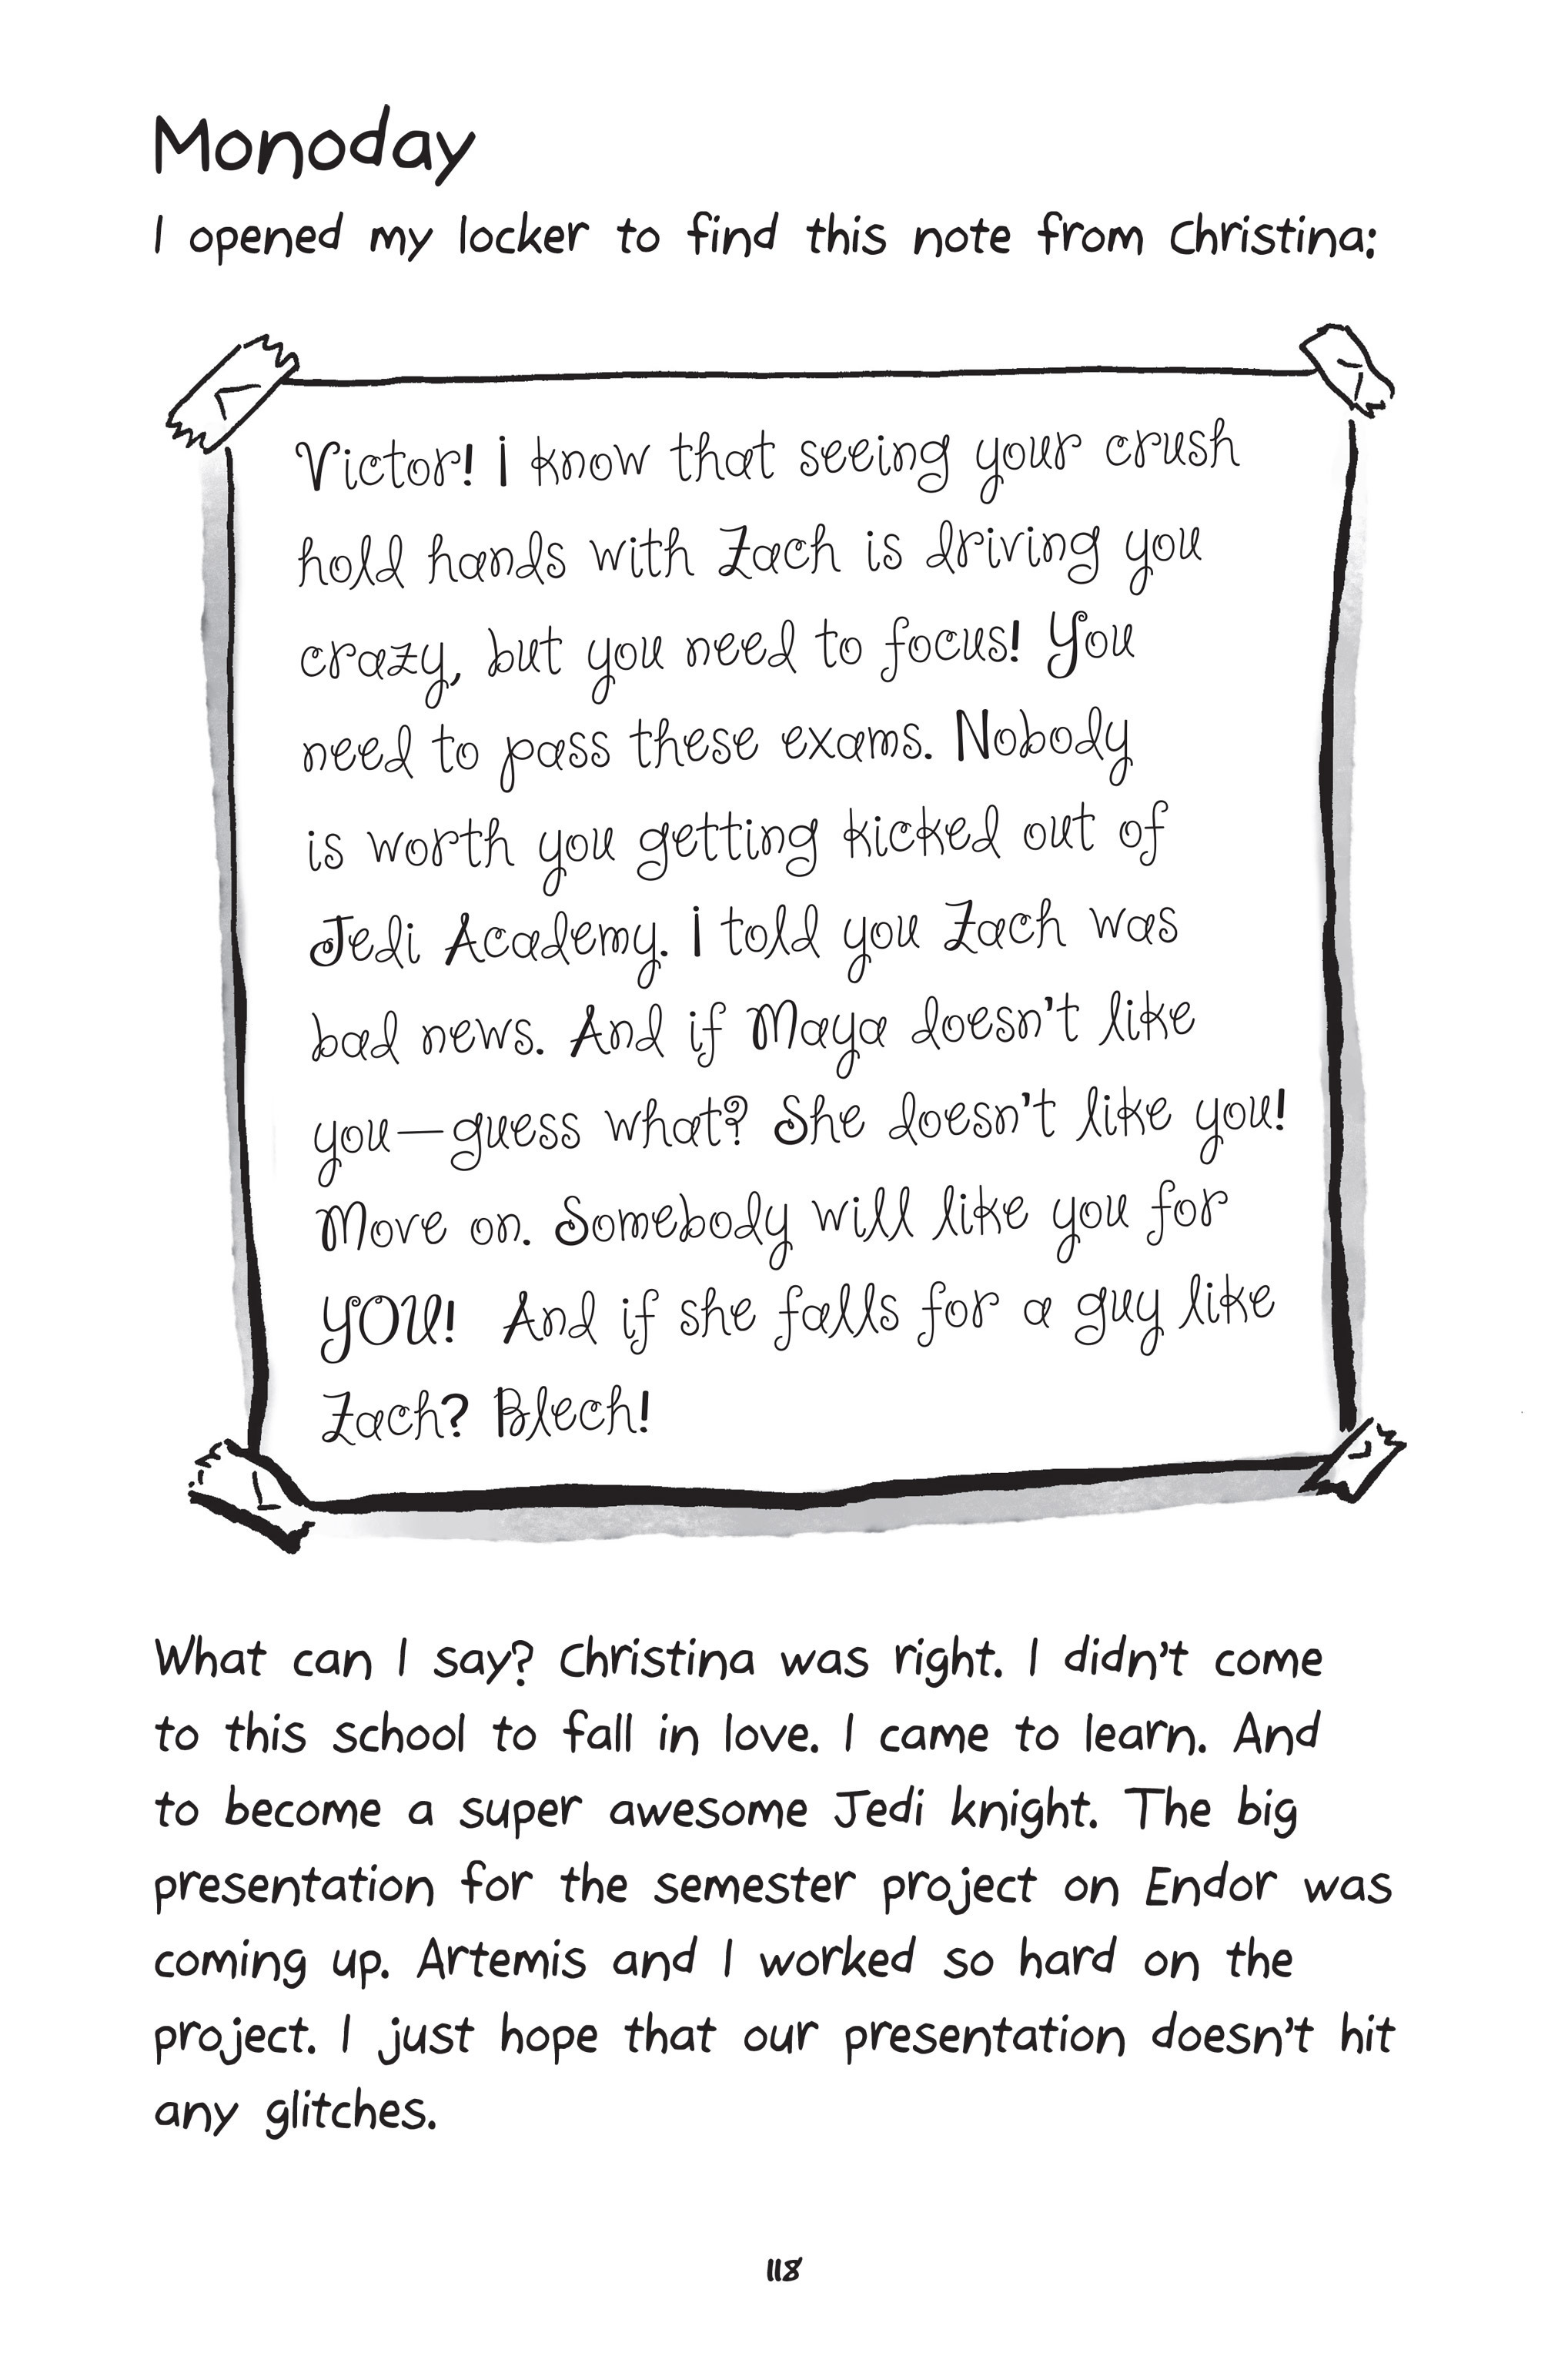 Monoday
I opened my locker to find this note from Christina:
Victor! I know that seeing your crush
hold hands with Zach is driving you
crazy, but you need to focus! You
need to pass these exams. Nobody
is worth you getting kicked out of
Jedi Academy. I told you Zach was
bad news. And if Maya doesn't like
you—guess what? She doesn't like you!
Move on. Somebody will like you for
YOU! And if she falls for a guy like
Zach? Blech!
What can I say? Christina was right. I didn't come
to this school to fall in love. I came to learn. And
to become a super awesome Jedi knight. The big
presentation for the semester project on Endor was
coming up. Artemis and I worked so hard on the
project. I just hope that our presentation doesn't hit
any glitches.
118